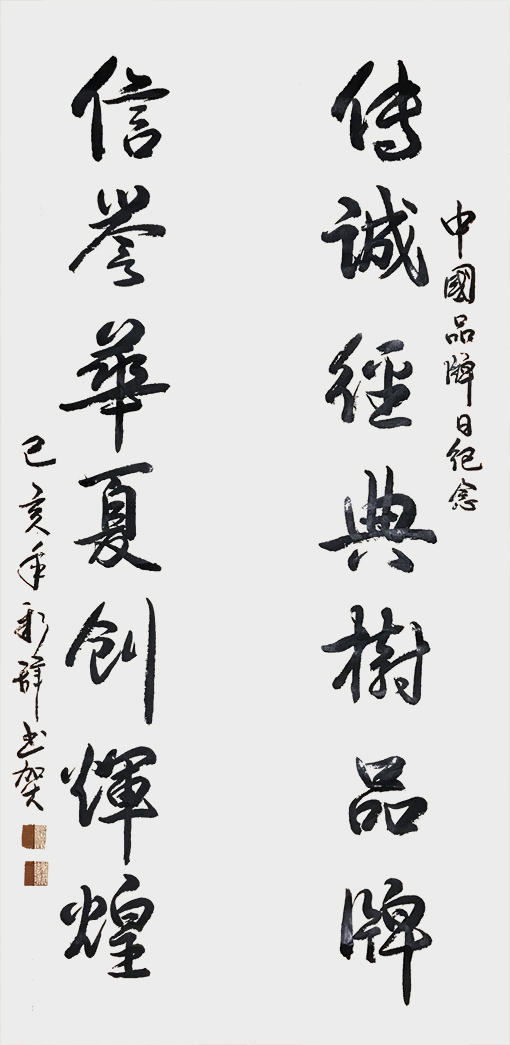 中國品牌日紀念
傳誠經典樹品牌
信譽華夏創輝煌
己亥年彩書賀